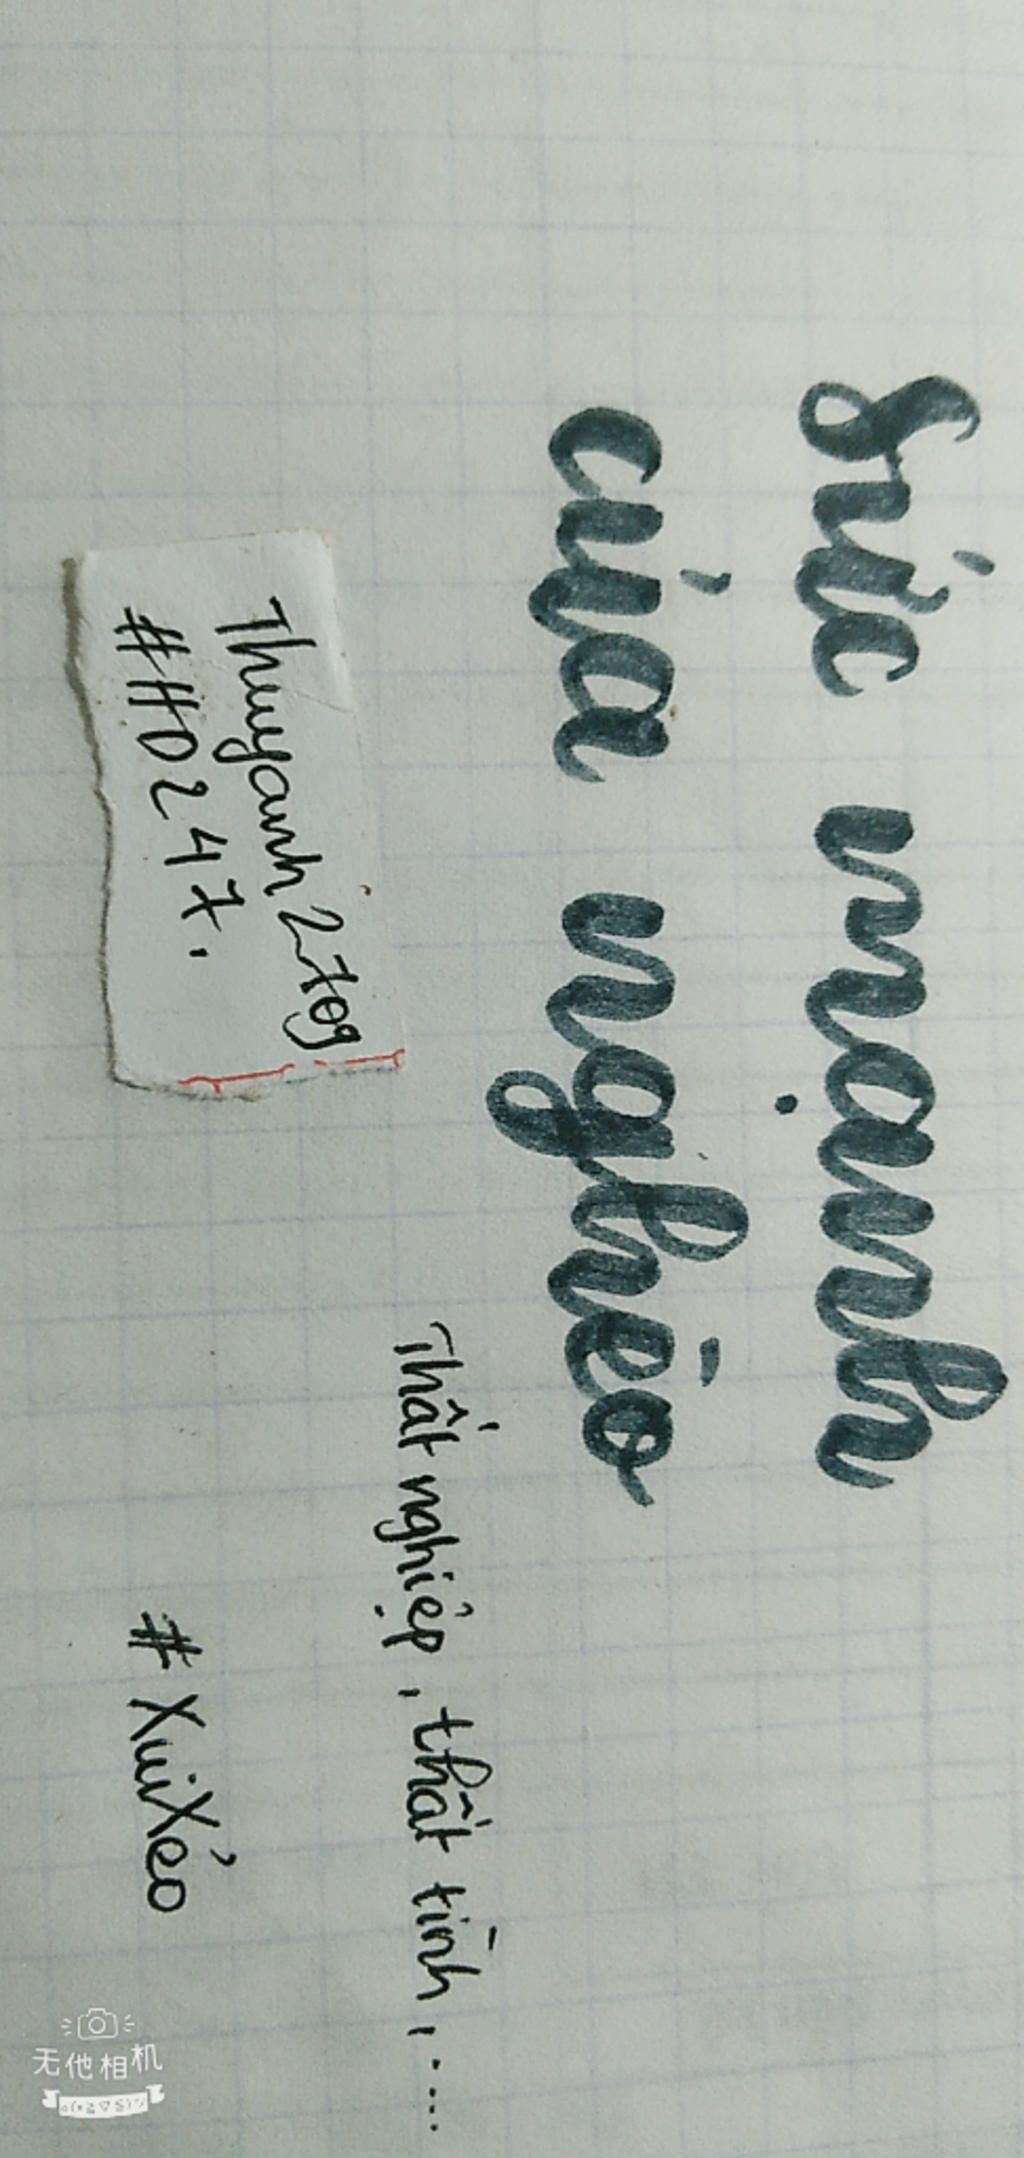 sức mạnh
của nghèo
Thất nghiệp, thất tình, ....
Thuyanh2709
#HD247.
#XuiXẻo
无他相机